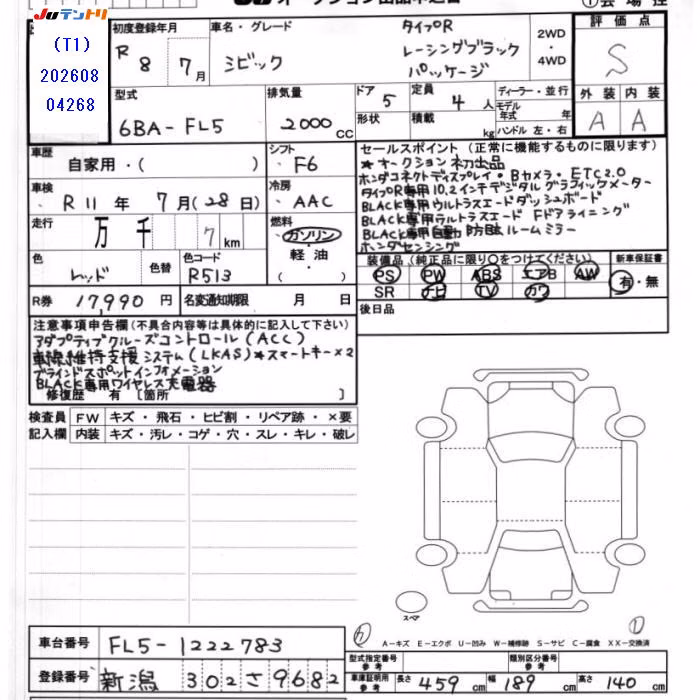 JUテントリ
(T1)
202608
04268
初度登録年月
R 8 年 7月
車名・グレード
シビック
タイプR
レーシングブラック
パッケージ
2WD
・
4WD
評価点
S
外装 内装
A A
型式
6BA-FL5
排気量
2000 CC
ドア 5
形状
定員 4 人
積載 kg
ディーラー・並行
モデル年式 年
ハンドル 左・右
車歴
自家用・( )
シフト
F6
車検
R 11 年 7月(28日)
冷房
AAC
走行
万 千 7 km
燃料
ガソリン
軽油
( )
色
レッド
色替
色コード
R513
R券 17,990 円
名変通知期限 月 日
セールスポイント(正常に機能するものに限ります)
*オークション初出品
ホンダコネクトディスプレイ・Bカメラ・ETC2.0
タイプR専用10.2インチデジタルグラフィックメーター
BLACK専用ウルトラスエードダッシュボード
BLACK専用ウルトラスエード Fドアライニング
BLACK専用自動防眩ルームミラー
ホンダセンシング
装備品(純正品に限り○をつけてください)
新車保証書
PS PW ABS エアB AW
SR ナビ TV カワ
有・無
後日品
注意事項申告欄(不具合内容等は具体的に記入して下さい)
アダプティブクルーズコントロール(ACC)
車線維持支援システム(LKAS)*スマートキー×2
ブラインドスポットインフォメーション
BLACK専用ワイヤレス充電器
修復歴 有 [箇所 ]
検査員記入欄
FW キズ・飛石・ヒビ割・リペア跡・×要
内装 キズ・汚レ・コゲ・穴・スレ・キレ・破レ
スペア
A-キズ E-エクボ U-凹み W-補修跡 S-サビ C-腐食 XX-交換済
車台番号 FL5-1222783
登録番号 新潟 302さ9682
型式指定番号 参考
類別区分番号 参考
車庫証明用 参考
長さ 459 cm 幅 189 cm 高さ 140 cm